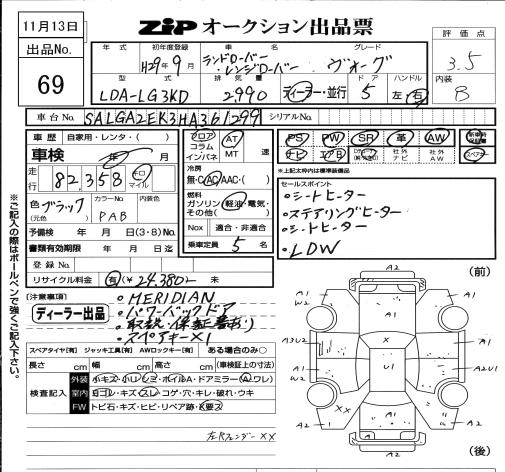 11月13日
ZiP オークション出品票
出品No.
69
評価点
3.5
内装
B
年式 初年度登録 車名 グレード
H29年9月 ランドローバー・レンジローバー ヴォーグ
型式 排気量 ドア ハンドル
LDA-LG3KD 2,990 ディーラー・並行 5 左・右
車台No. SALGA2EK3HA361299 シリアルNo.
車歴 自家用・レンタ・( )
車検 年 月
走行 82,358 キロ マイル
色 ブラック (元色) カラーNo. PAB 内装色
予備検 年 月 日(3・8)No.
書類有効期限 年 月 日迄
登録No.
リサイクル料金 有(¥24,380) 未
フロア コラム インパネ AT MT 速
冷房 無・C・AC・AAC・( )
燃料 ガソリン・軽油・電気・その他( )
Nox 適合・非適合
乗車定員 5 名
PS PW SR 革 AW 新車時保証書
ナビ エアB 社外ナビ 社外AW スペアキー
※上記太枠内は標準装備品
セールスポイント
・シートヒーター
・ステアリングヒーター
・シートヒーター
・LDW
[注意事項]
ディーラー出品
・MERIDIAN
・パワーバックドア
・取説・保証書有り
・スペアキー×1
スペアタイヤ[有] ジャッキ工具[有] AWロックキー[有] ある場合のみ○
長さ cm 幅 cm 高さ cm (車検証上の寸法)
検査記入
外装 小キズ・小ヘコミ・ホイルA・ドアミラー(A・ワレ)
室内 ヨゴレ・キズ・スレ・コゲ・穴・キレ・破れ・ウキ
FW トビ石・キズ・ヒビ・リペア跡・X要ス
左Rフェンダー××
※ご記入の際はボールペンで強くご記入下さい。
(前)
A2
A1 A1
W2
A1
A3U2 X A1
A1 U1 A2U1
A1
W2 XX A1 A1
A2
(後)